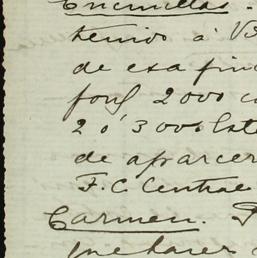 Encinillas.
tenido á
de esa fin
2000
2 ó 3000 Este
de aparcer
F. C. Central
Carmen.
que hacer